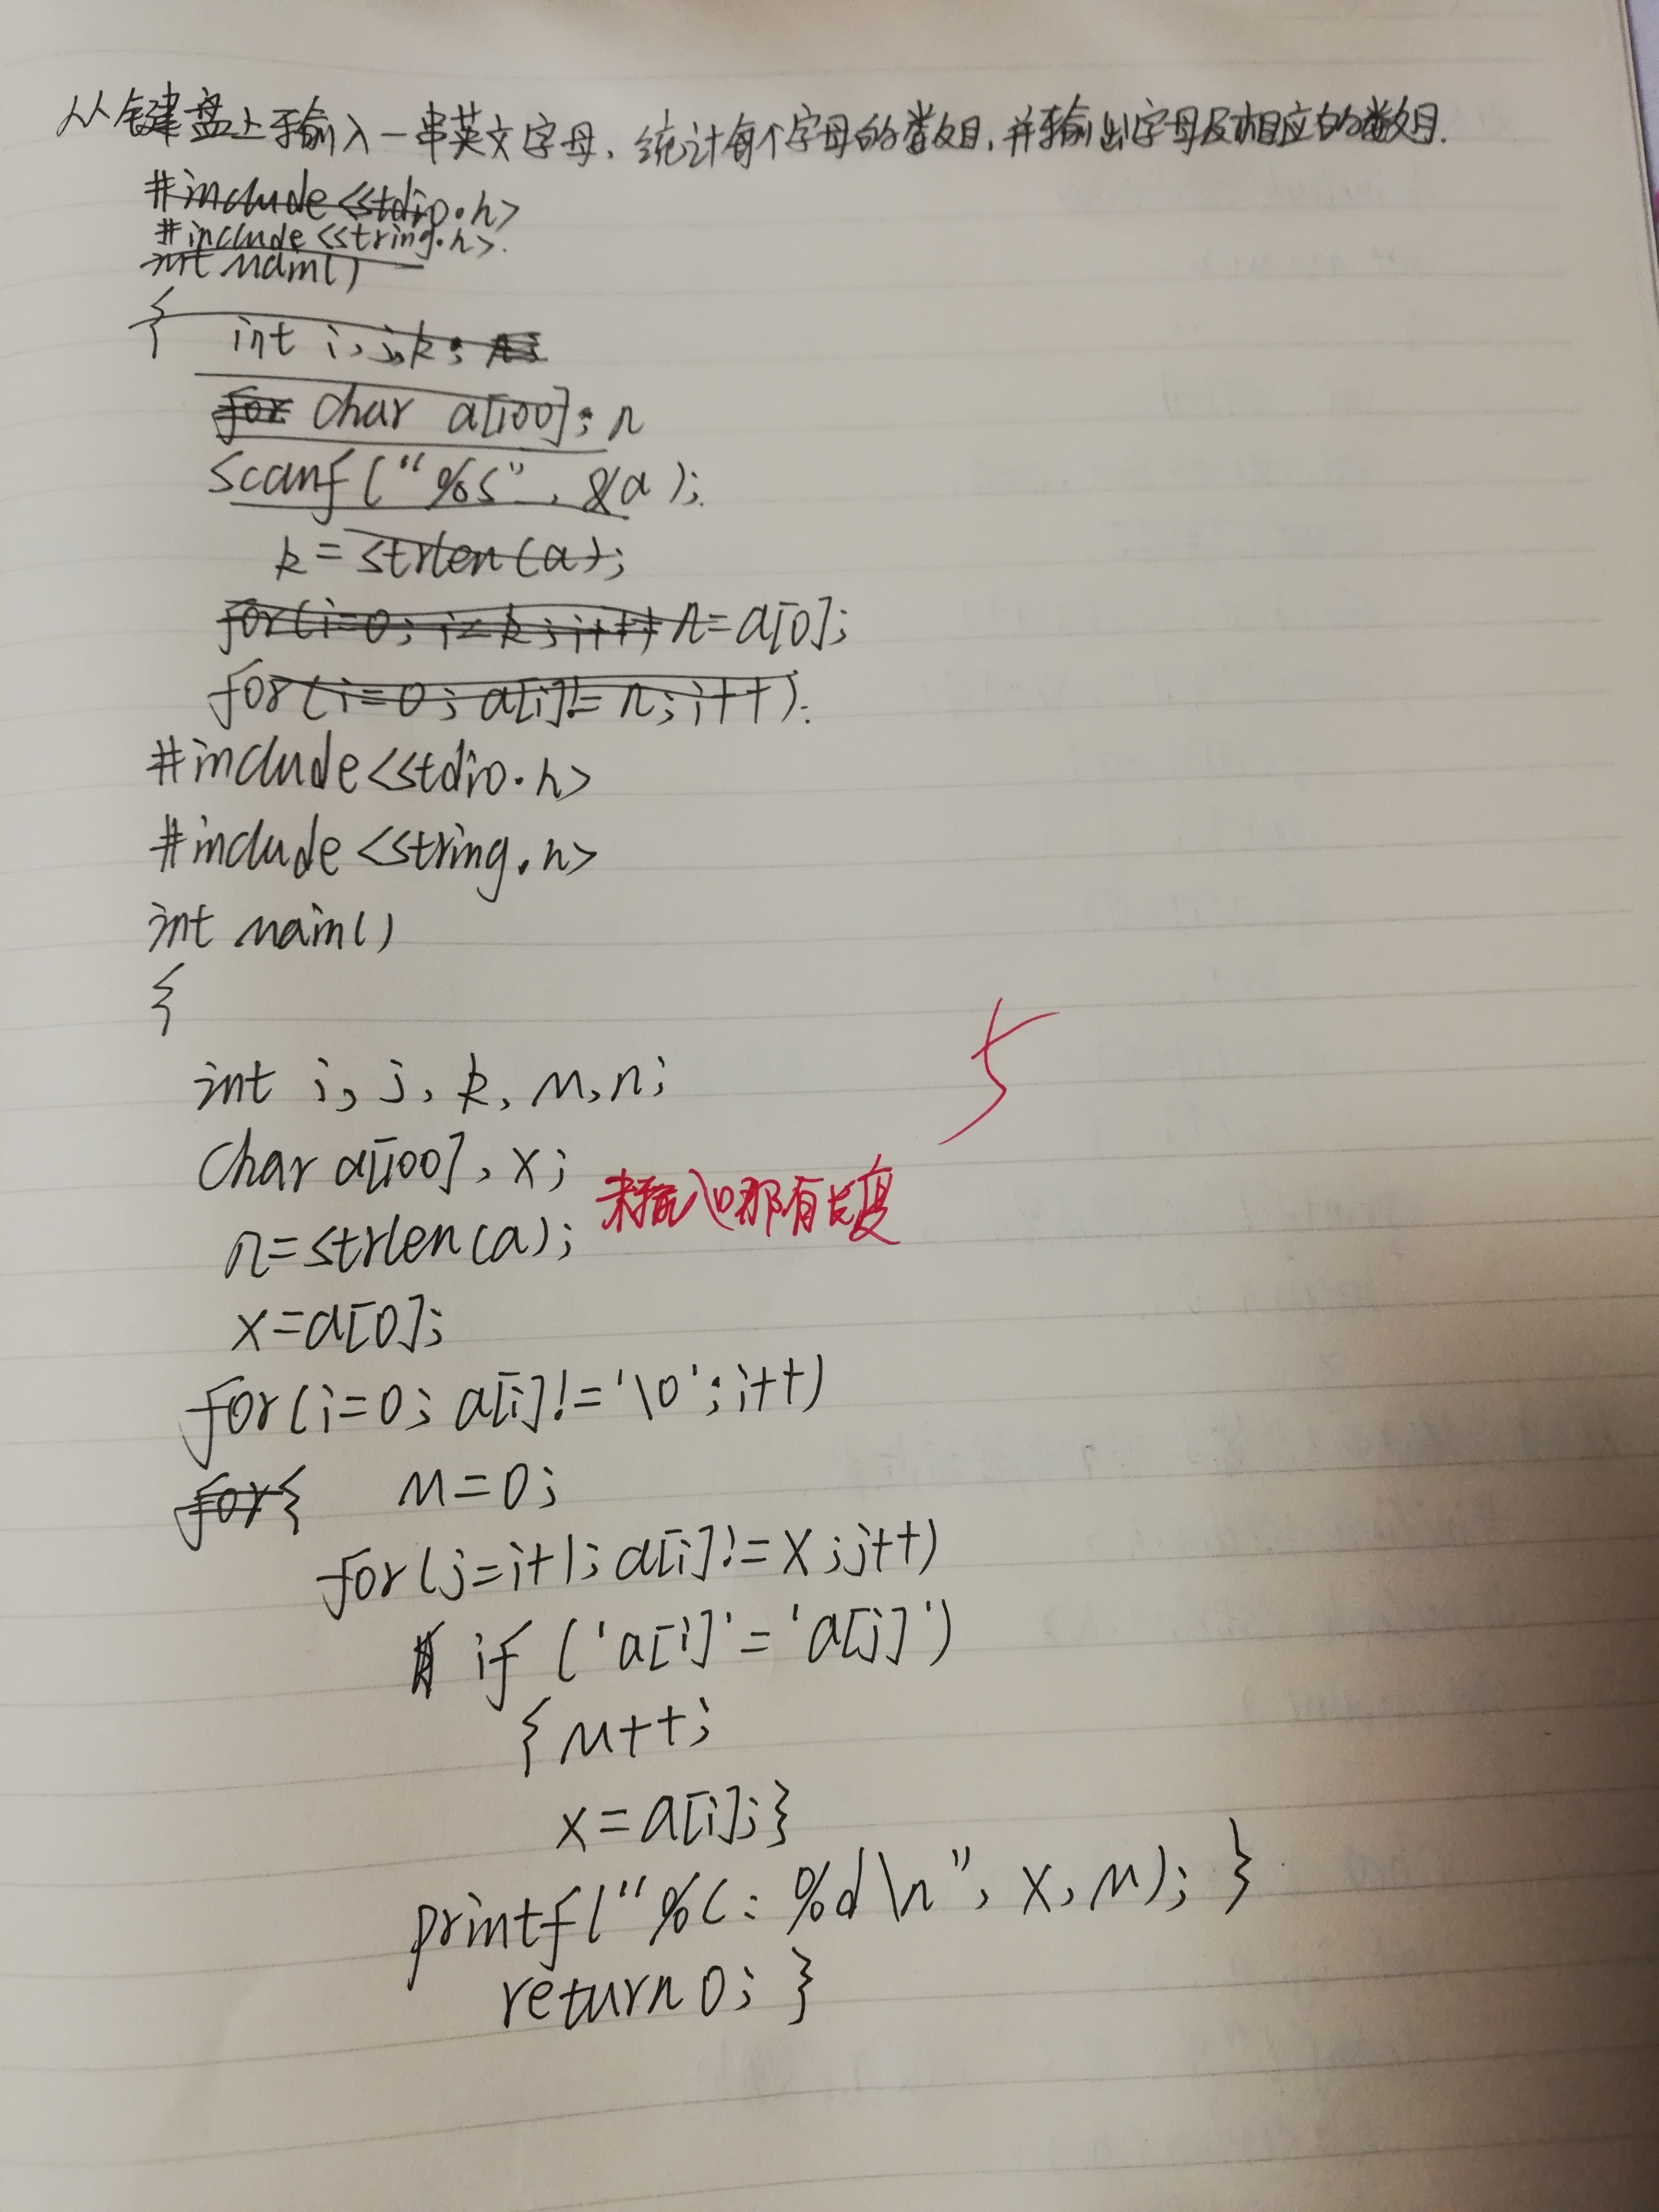 从键盘上输入一串英文字母，统计每个字母的数目，并输出字母及相应的数目.
#include <stdio.h>
#include <string.h>
int main()
{ int i, j, k;
for char a[100]; n
scanf("%s", &a);
k=strlen(a);
for(i=0; i<k; i++) n=a[0];
for(i=0; a[i]!=n; i++).
#include<stdio.h>
#include<string.h>
int main()
{
int i, j, k, m, n;
char a[100], x;
n=strlen(a); 未输入哪有长度
5
x=a[0];
for(i=0; a[i]!='\0'; i++)
for{ m=0;
for(j=i+1; a[i]!=x; j++)
if ('a[i]'='a[j]')
{m++;
x=a[i];}
printf("%c: %d\n", x, m); }
return 0; }